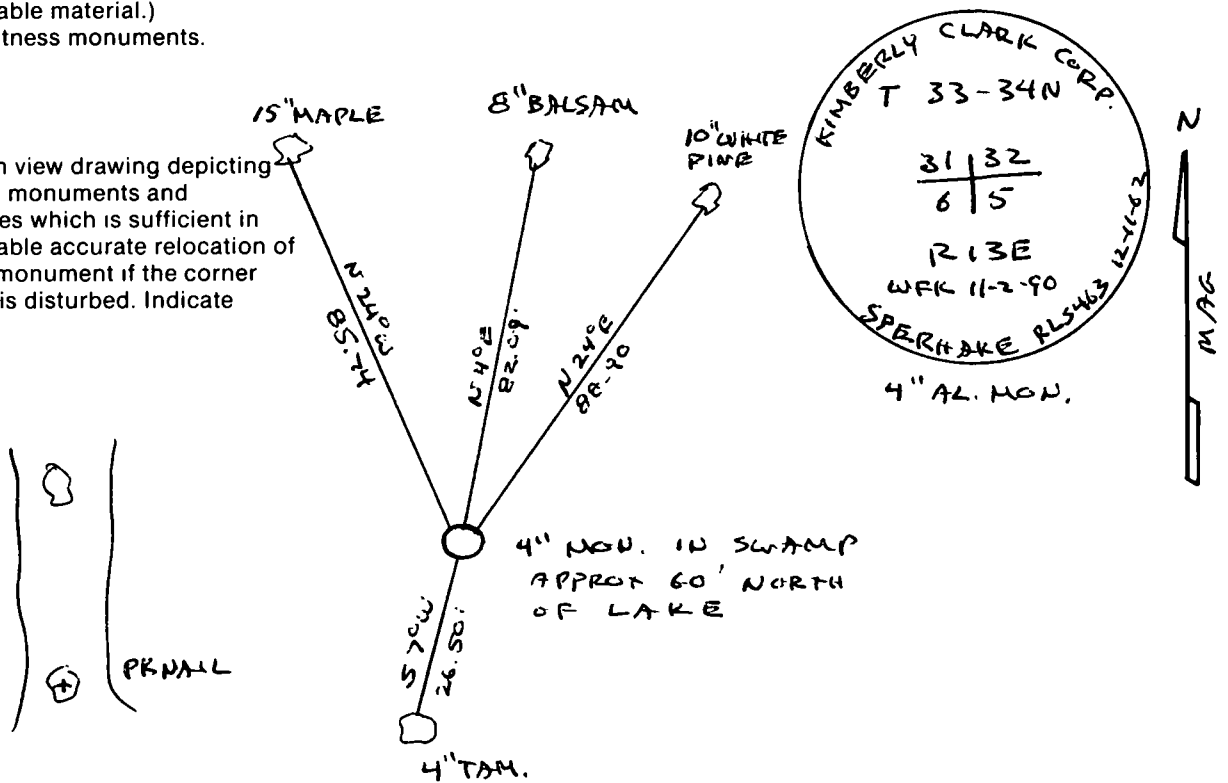 able material.)
tness monuments.
n view drawing depicting
monuments and
es which is sufficient in
able accurate relocation of
monument if the corner
is disturbed. Indicate
15" MAPLE
8" BALSAM
10" WHITE
PINE
N 24° W
85.74
N 4° E
82.09'
N 24° E
88.90
S 7° W
26.50'
4" MON. IN SWAMP
APPROX 60' NORTH
OF LAKE
4" TAM.
PK NAIL
KIMBERLY CLARK CORP.
T 33-34N
31 32
6 5
R 13E
WFK 11-2-90
SPERHAKE RLS463 12-11-62
4" AL. MON.
N
MAG